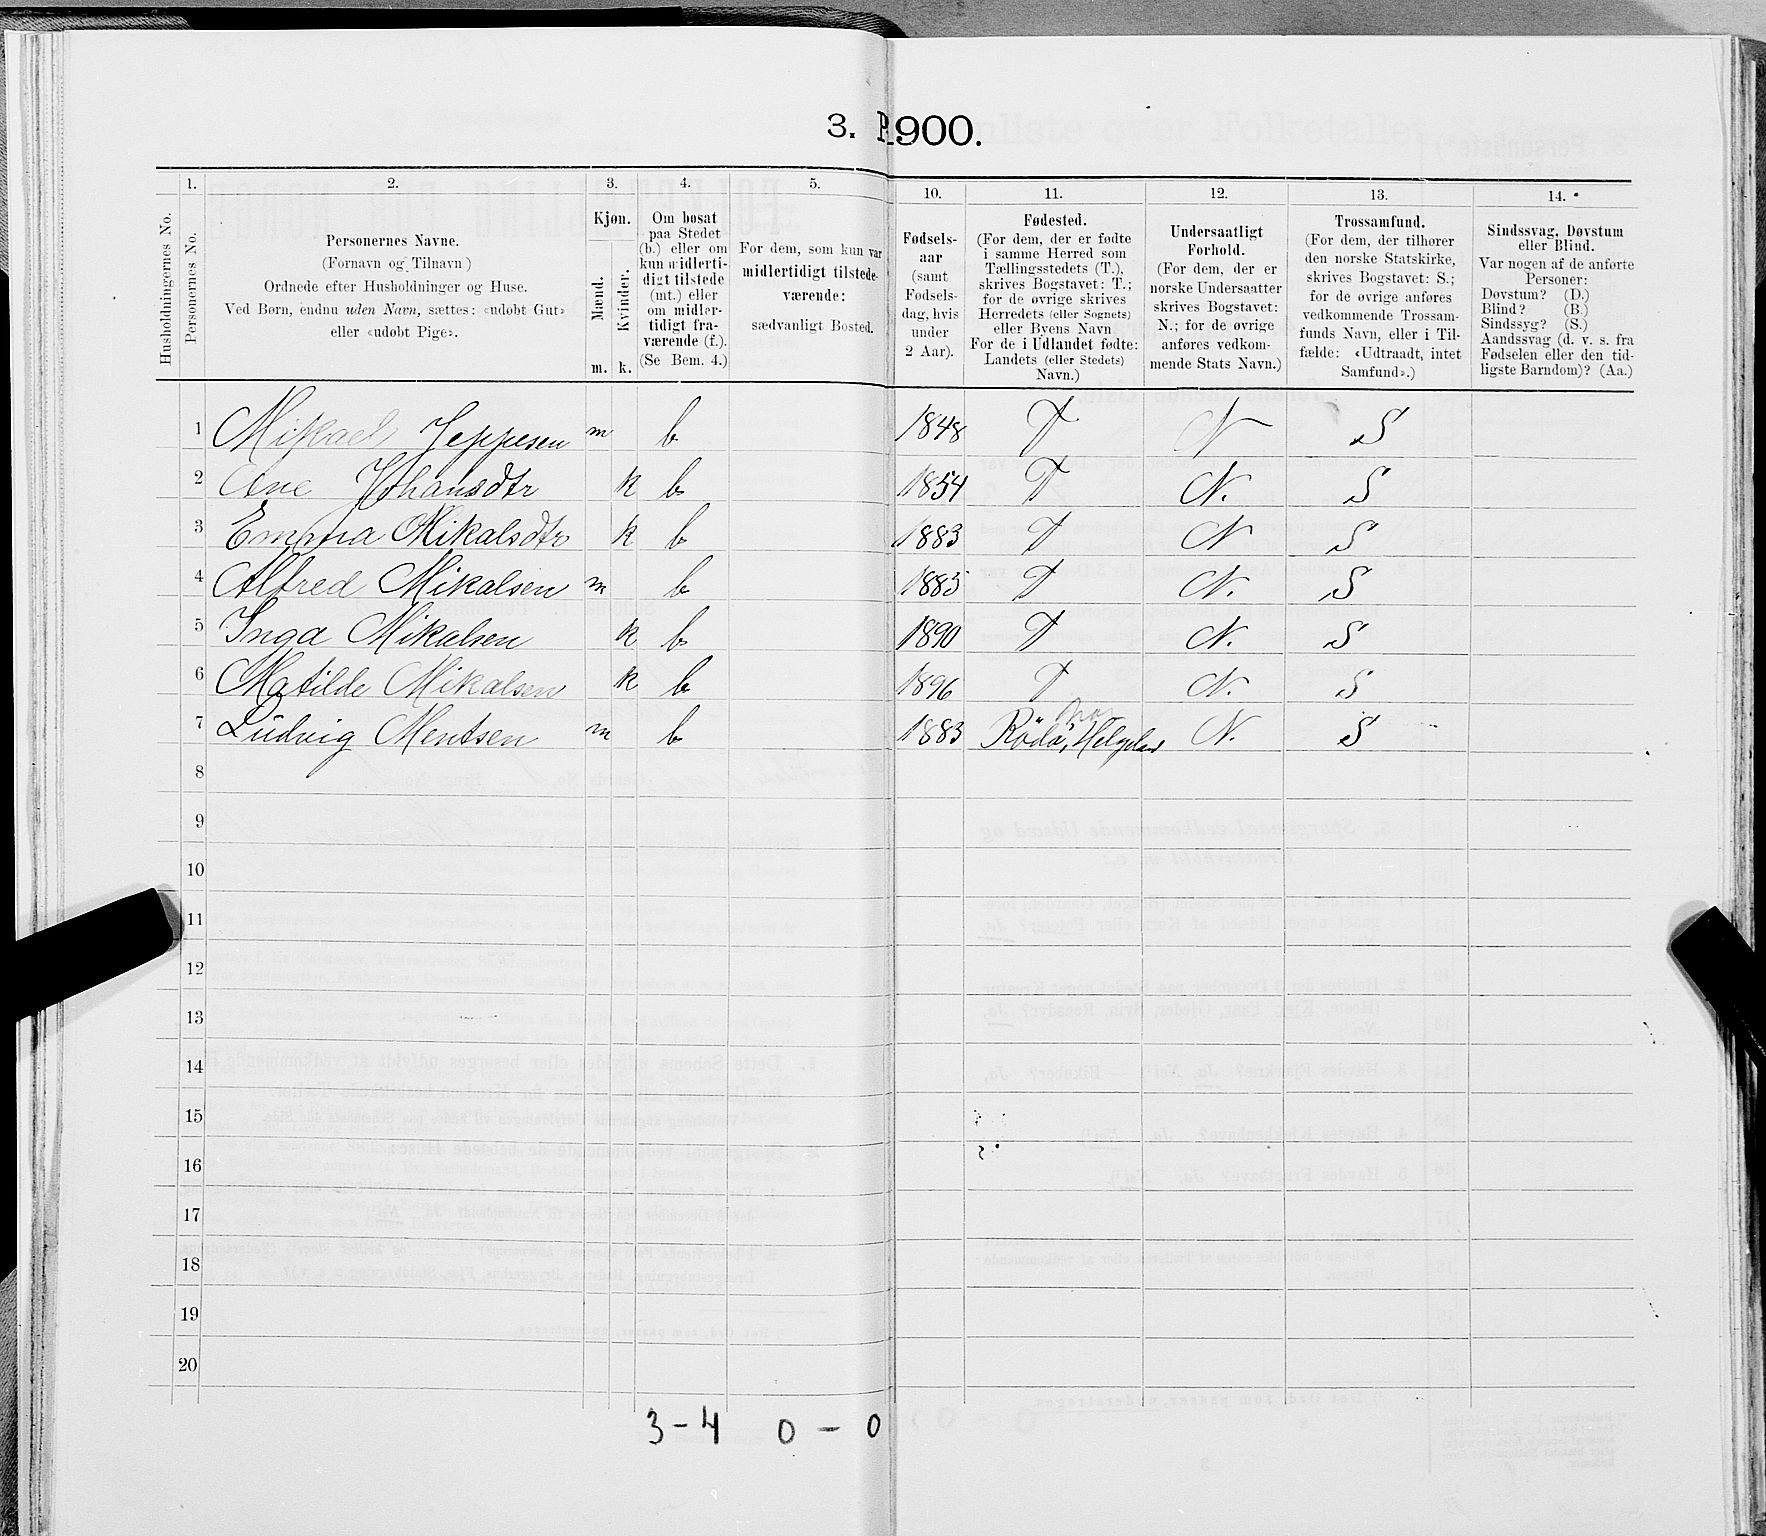 3. P900.
1. 2. 3. 4. 5. 10. 11. 12. 13. 14.
Husholdningernes No.
Personernes No.
Personernes Navne.
(Fornavn og Tilnavn)
Ordnede efter Husholdninger og Huse.
Ved Børn, endnu uden Navn, sættes: «udøbt Gut»
eller «udøbt Pige».
Kjøn.
Mænd.
Kvinder.
m. k.
Om bosat
paa Stedet
(b.) eller om
kun midlerti-
digt tilstede
(mt.) eller
om midler-
tidigt fra-
værende (f.).
(Se Bem. 4.)
For dem, som kun var
midlertidigt tilstede-
værende:
sædvanligt Bosted.
Fødsels-
aar
(samt
Fødsels-
dag, hvis
under
2 Aar).
Fødested.
(For dem, der er fødte
i samme Herred som
Tællingsstedets (T.),
skrives Bogstavet: T.;
for de øvrige skrives
Herredets (eller Sognets)
eller Byens Navn
For de i Udlandet fødte:
Landets (eller Stedets)
Navn.)
Undersaatligt
Forhold.
(For dem, der er
norske Undersaatter
skrives Bogstavet:
N.; for de øvrige
anføres vedkom-
mende Stats Navn.)
Trossamfund.
(For dem, der tilhører
den norske Statskirke,
skrives Bogstavet: S.;
for de øvrige anføres
vedkommende Trossam-
funds Navn, eller i Til-
fælde: «Udtraadt, intet
Samfund».)
Sindssvag, Døvstum
eller Blind.
Var nogen af de anførte
Personer:
Døvstum? (D.)
Blind? (B.)
Sindssyg? (S.)
Aandssvag (d. v. s. fra
Fødselen eller den tid-
ligste Barndom)? (Aa.)
1 Mikael Jeppesen m b 1848 T N S
2 Ane Johansdtr k b 1854 T N. S
3 Emma Mikalsdtr k b 1883 T N S
4 Alfred Mikalsen m b 1885 T N. S
5 Inga Mikalsen k b 1890 T N. S
6 Matilde Mikalsen k b 1896 T N. S
7 Ludvig Mentsen m b 1883 Rödö, Helgeland N. S
8
9
10
11
12
13
14
15
16
17
18
19
20
3-4 0-0